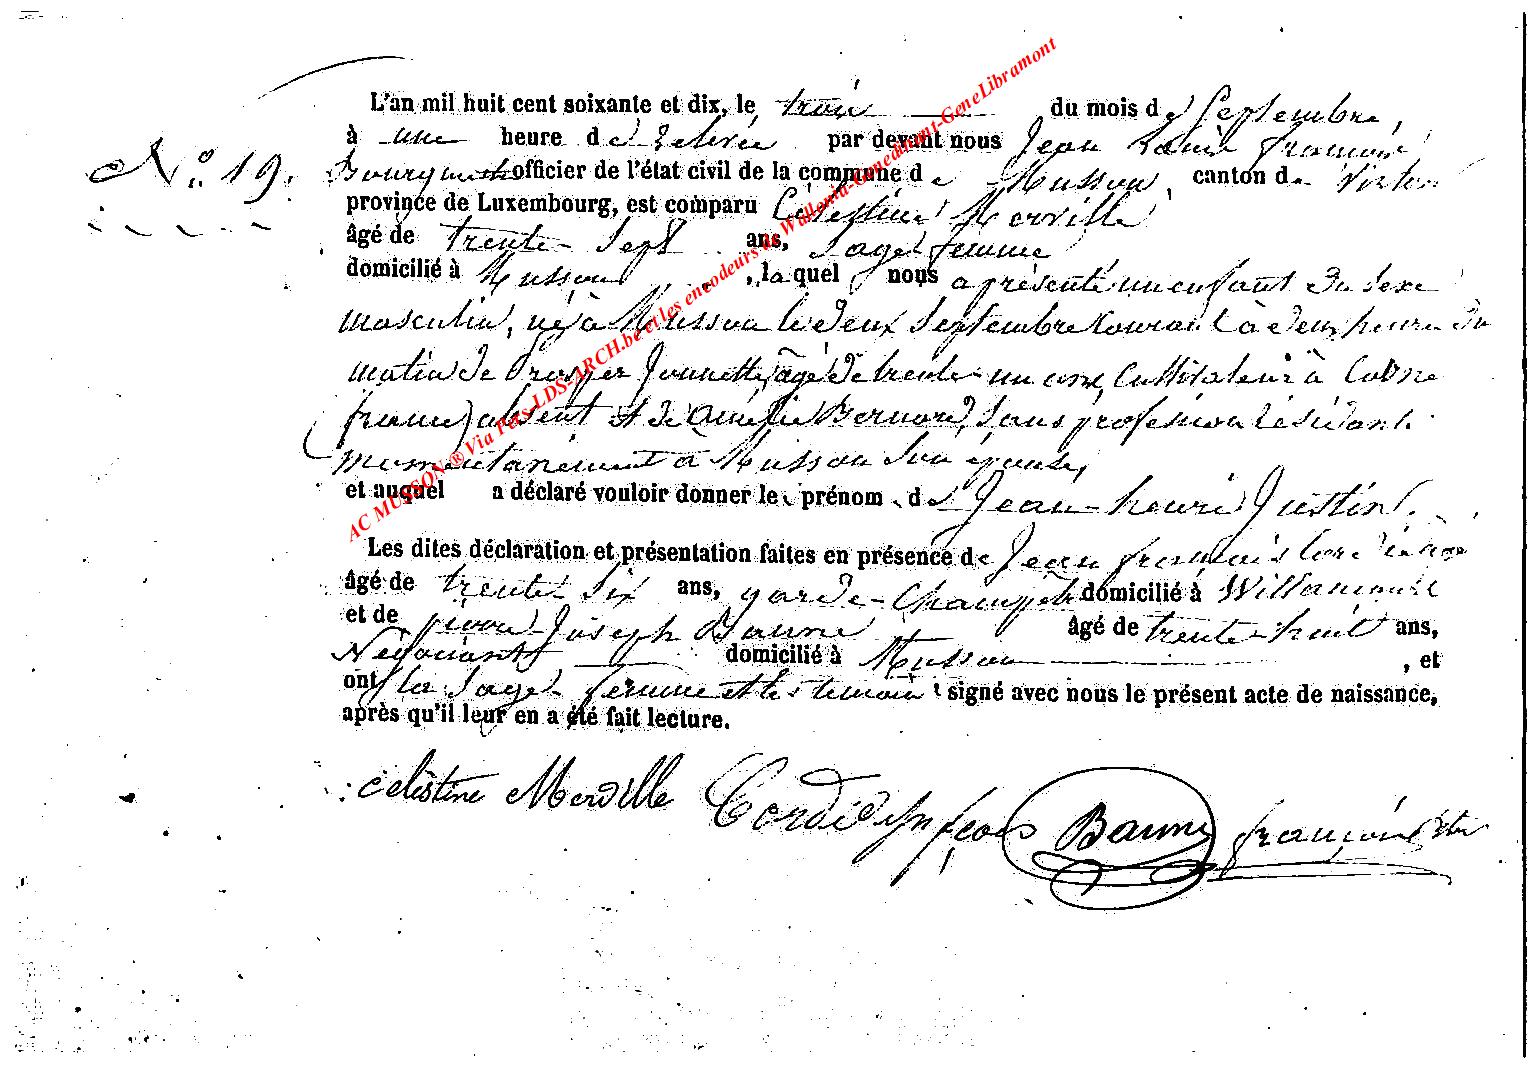 L'an mil huit cent soixante et dix, le trois du mois de Septembre,
à une heure de relevée par devant nous Jean François
N.° 19. officier de l'état civil de la commune de Musson, canton de Virton
province de Luxembourg, est comparu Célestine Merville
âgé de trente-sept ans, sage femme
domicilié à Musson, laquel nous a présenté un enfant du sexe
masculin, né à Musson le deux Septembre courant à deux heures du
matin de Prosper Jonnette, âgé de trente-un ans, Cultivateur à Cosne
(france) absent et de Amélie Bernard, sans profession résidant
momentanément à Musson son épouse,
et auquel a déclaré vouloir donner le prénom de Jean-henri Justin.
Les dites déclaration et présentation faites en présence de Jean françois
âgé de trente-six ans, garde-Champêtre domicilié à Willancourt
et de pierre Joseph Baune âgé de trente-huit ans,
Négociant domicilié à Musson, et
ont la sage-femme et les témoins signé avec nous le présent acte de naissance,
après qu'il leur en a été fait lecture.
celestine Merville Baune françois
AC MUSSON ® Via Fets-LDS-ARCH.be et les encodeurs de Wallonia-Geneanant-GeneLibramont